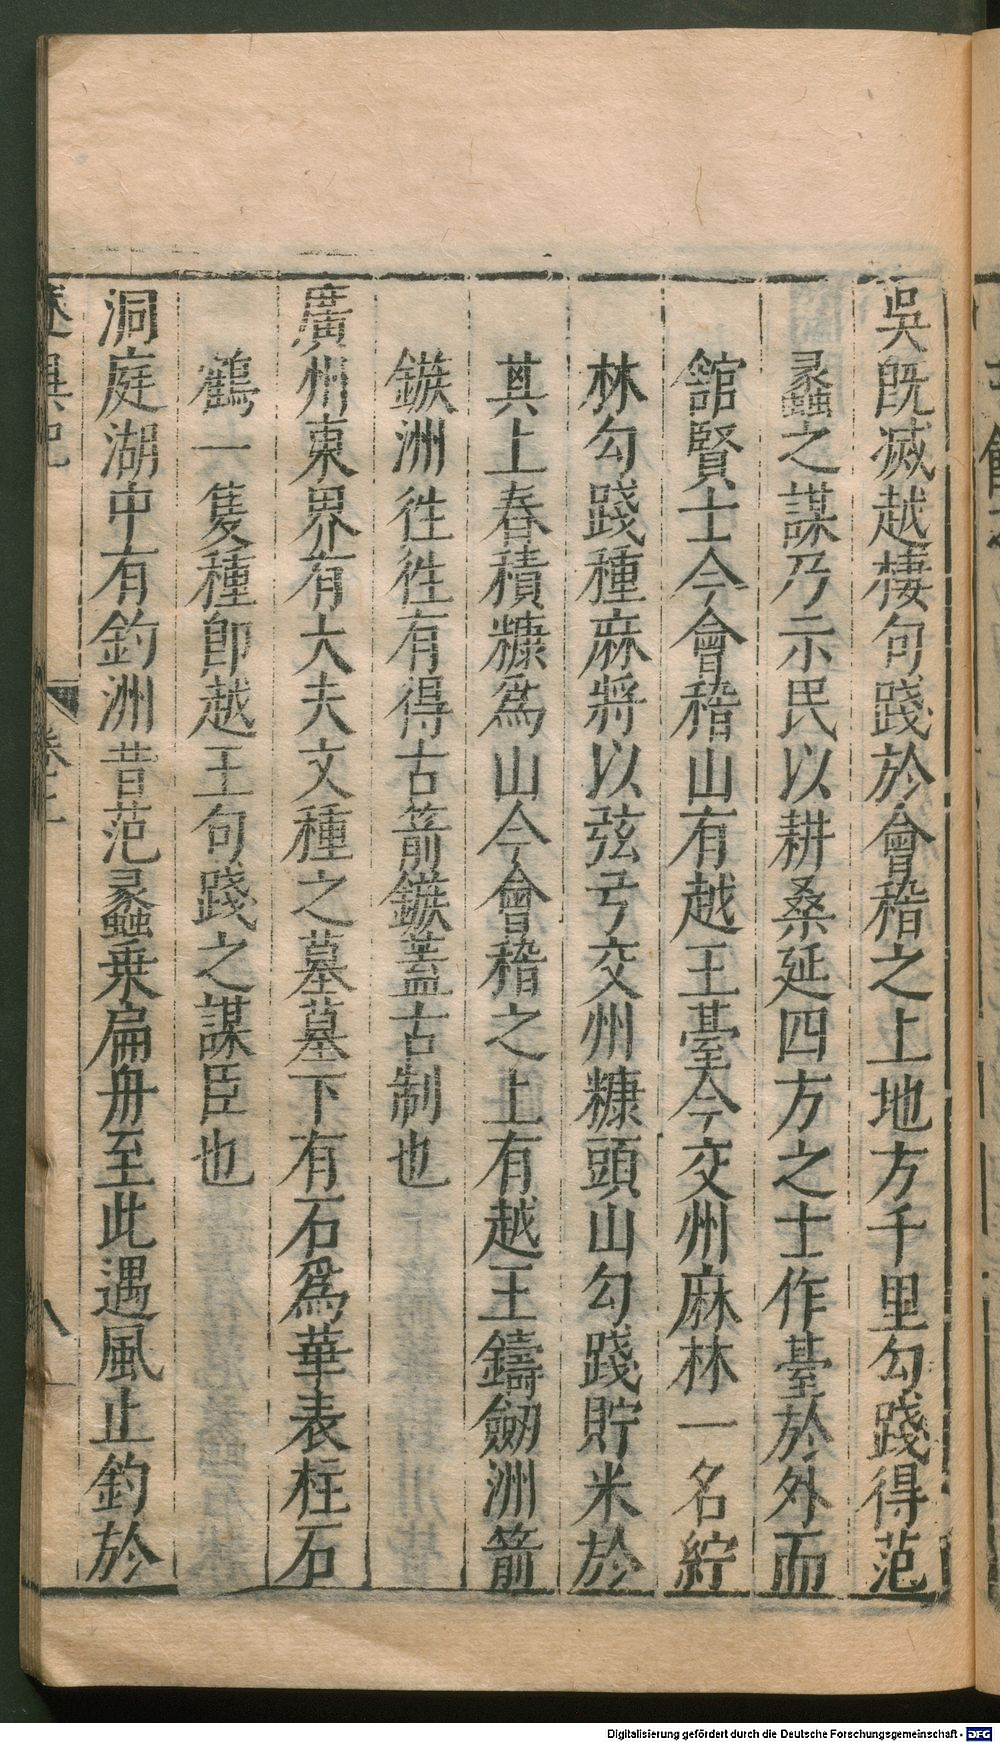 吳既滅越棲句踐於會稽之上地方千里勾踐得范
蠡之謀乃示民以耕桑延四方之士作臺於外而
舘賢士今會稽山有越王臺今交州麻林一名紵
林勾踐種麻將以弦弓交州糠頭山勾踐貯米於
其上舂積糠爲山今會稽之上有越王鑄劒洲箭
鏃洲徃徃有得古箭鏃蓋古制也
廣州東界有大夫文種之墓墓下有石爲華表柱石
鶴一隻種即越王句踐之謀臣也
洞庭湖中有釣洲昔范蠡乗扁舟至此遇風止釣於
述異記
卷上
八
Digitalisierung gefördert durch die Deutsche Forschungsgemeinschaft - DFG